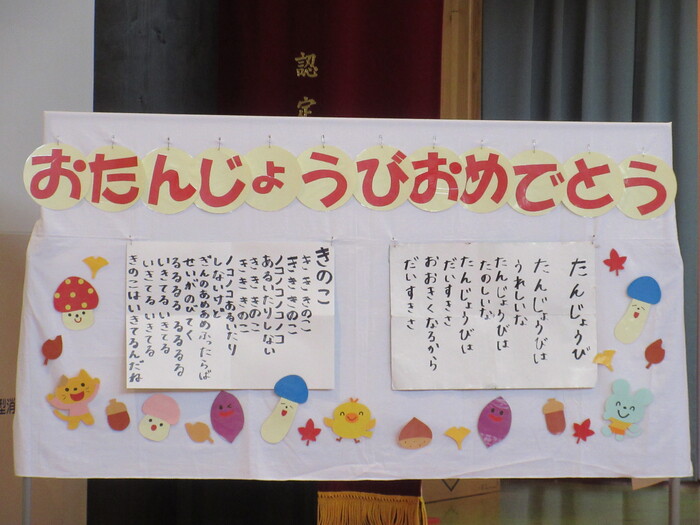 認定
おたんじょうびおめでとう
きのこ
き き きのこ
き き きのこ
ノコノコ ノコノコ
あるいたりしない
き き きのこ
き き きのこ
ノコノコ あるいたり
しないけど
ぎんのあめあめふったらば
せいがのびてく
るるるる るるるる
いきてる いきてる
いきてる いきてる
きのこはいきてるんだね
たんじょうび
たんじょうびは
うれしいな
たんじょうびは
たのしいな
たんじょうびは
だいすきさ
おおきくなるから
だいすきさ